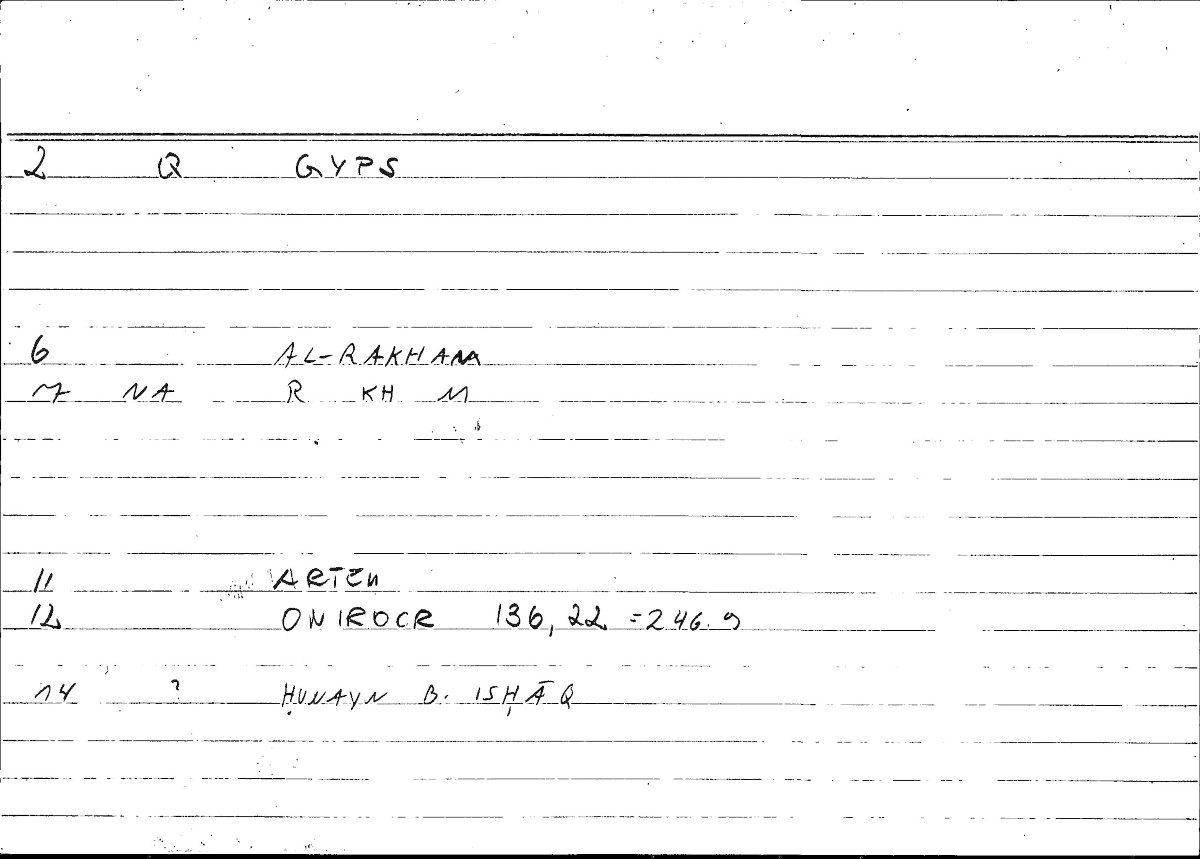 2 Q GYPS
6 AL-RAKHAM
7 NA R KH M
11 ARTEM
12 ONIROCR 136,22 =246.9
14 ? ḤUNAYN B. ISḤĀQ